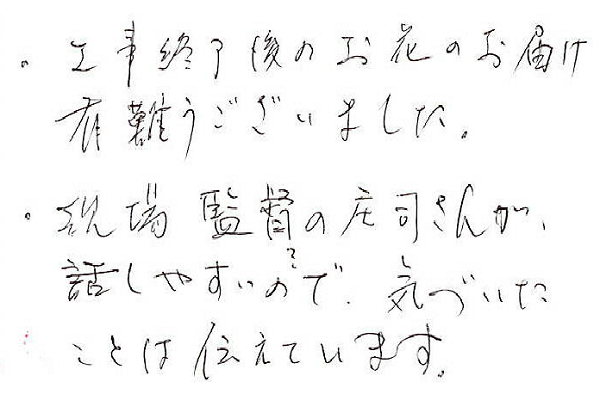 ・工事終了後のお花のお届け
有難うございました。
・現場監督の庄司さんが、
話しやすいので、気づいた
ことは伝えています。